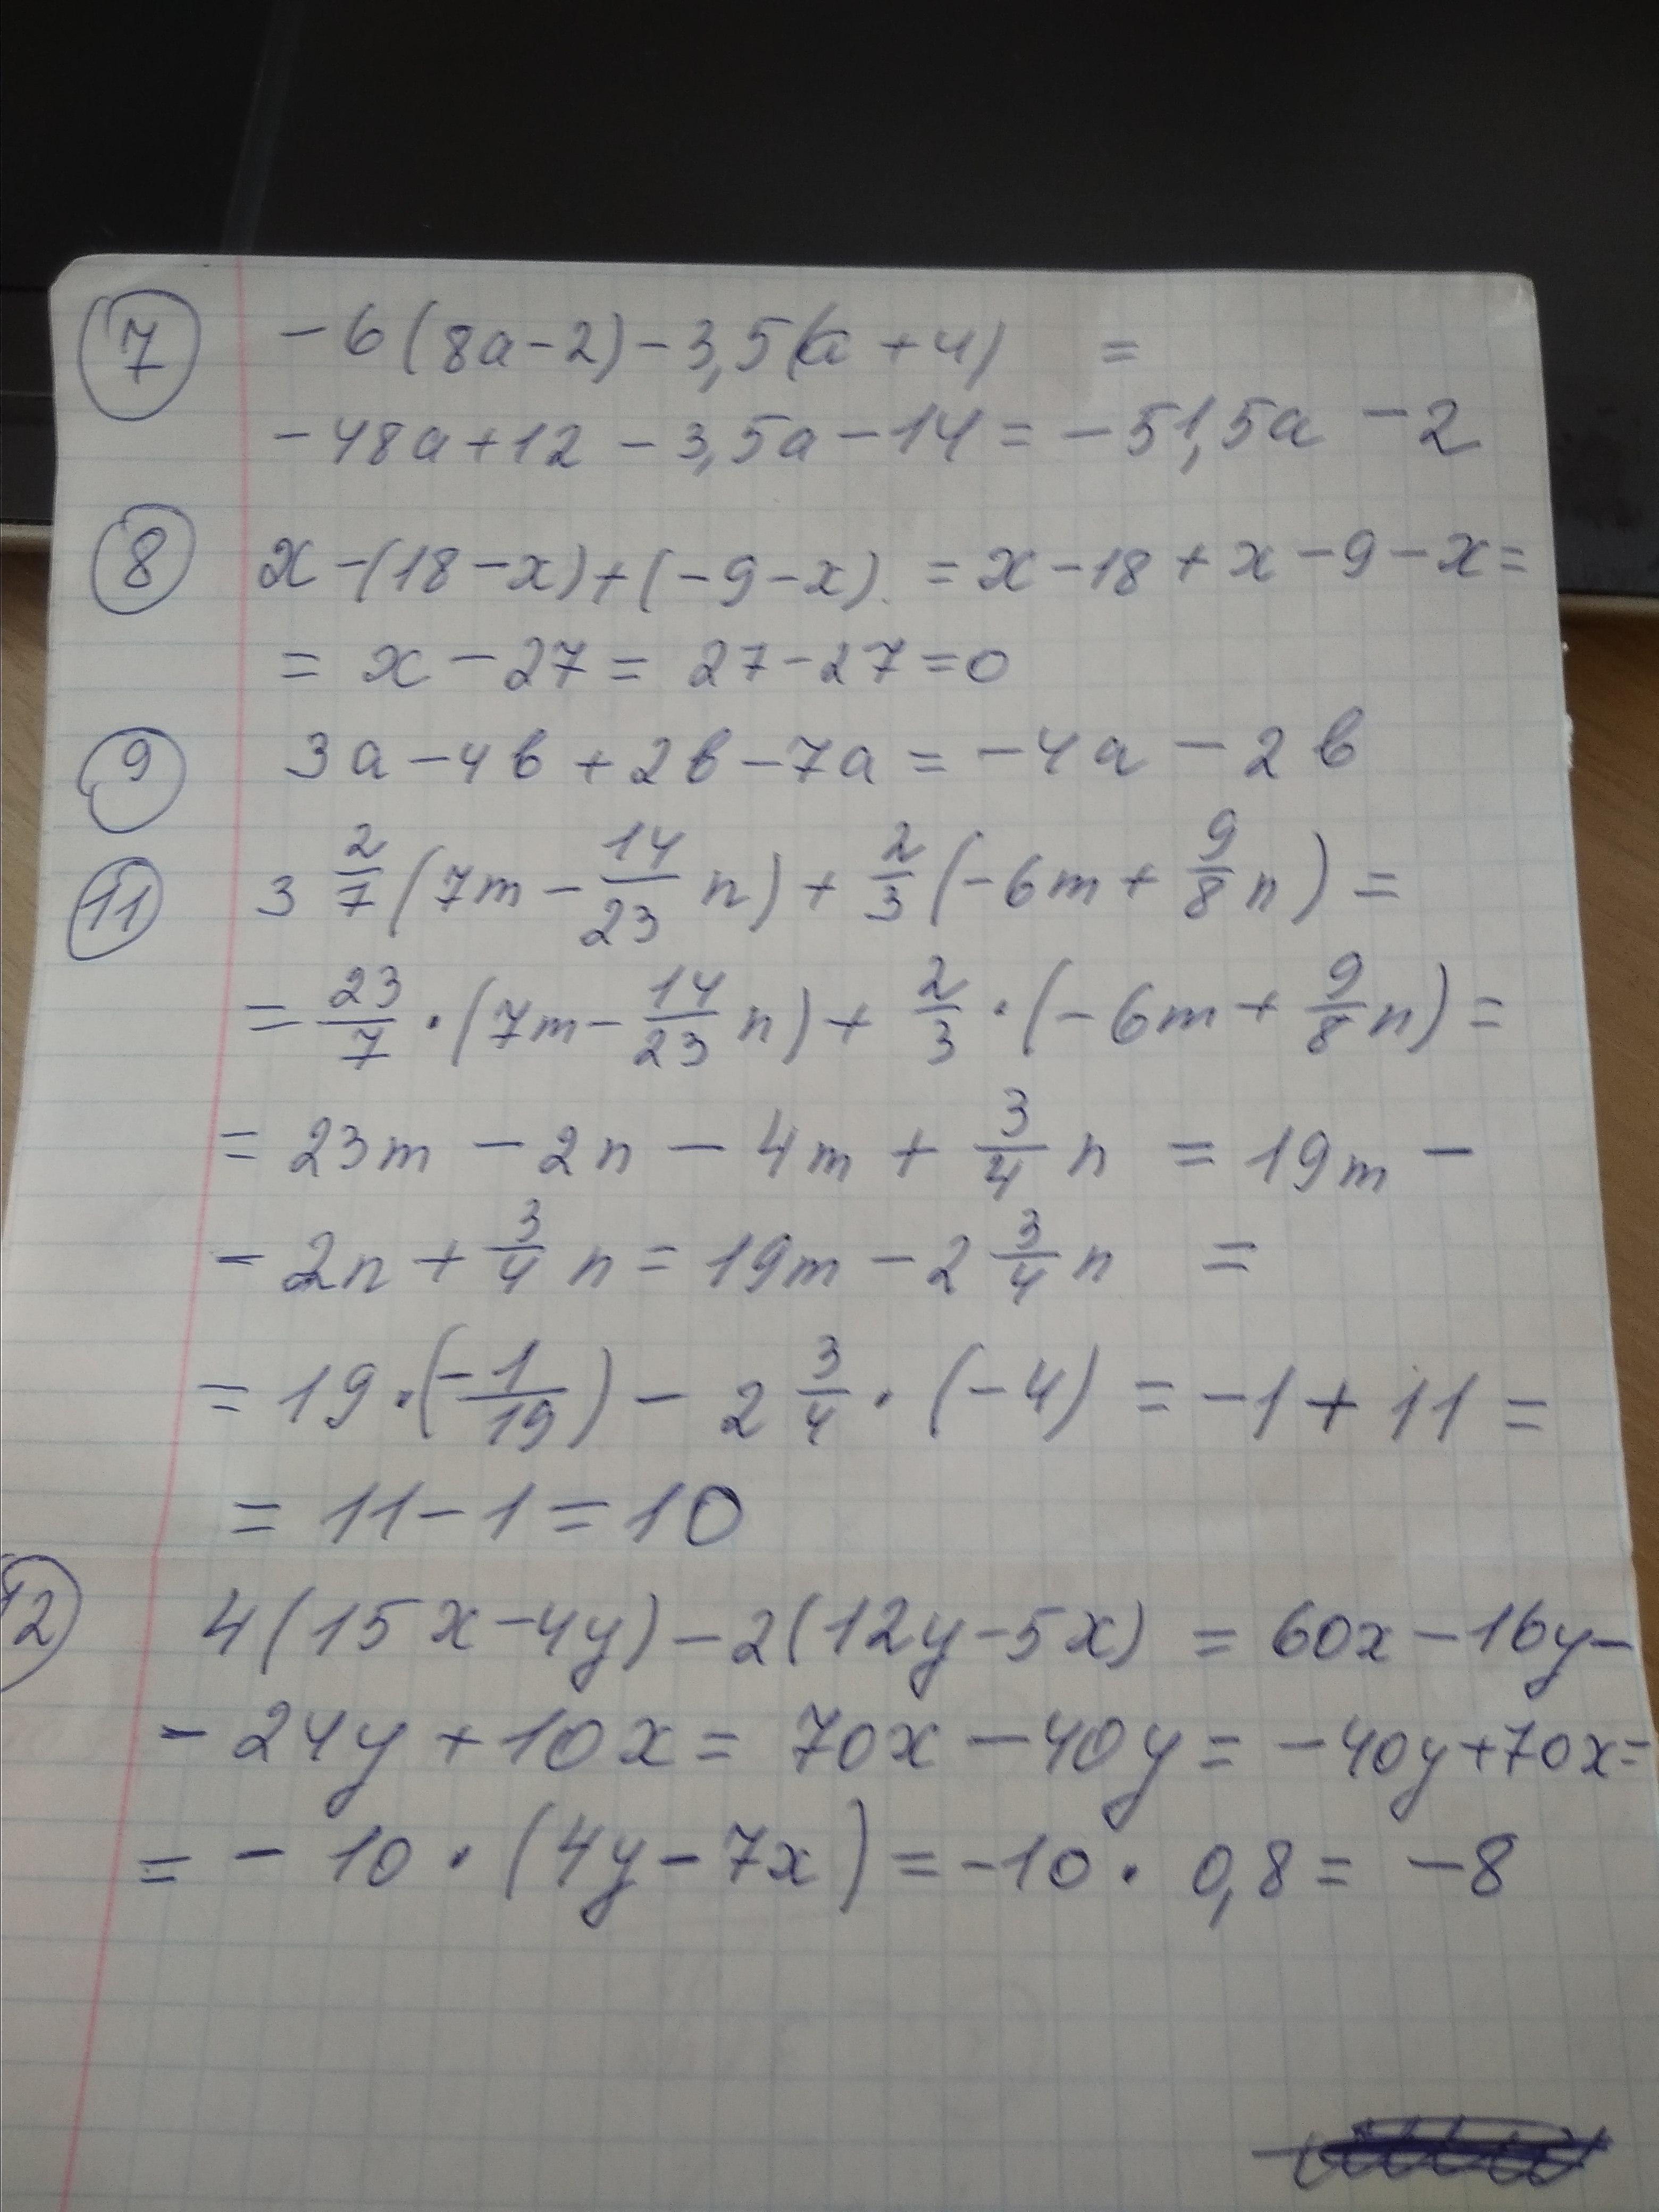 7 -6(8a-2)-3,5(a+4) =
-48a+12-3,5a-14=-51,5a-2
8 x-(18-x)+(-9-x).=x-18+x-9-x=
=x-27=27-27=0
9 3a-4b+2b-7a=-4a-2b
11 3 2/7(7m-14/23 n)+2/3(-6m+9/8 n)=
=23/7·(7m-14/23 n)+2/3·(-6m+9/8 n)=
=23m-2n-4m+3/4 n=19m-
-2n+3/4 n=19m-2 3/4 n=
=19·(-1/19)-2 3/4·(-4)=-1+11=
=11-1=10
12 4(15x-4y)-2(12y-5x)=60x-16y-
-24y+10x=70x-40y=-40y+70x=
=-10·(4y-7x)=-10·0,8=-8